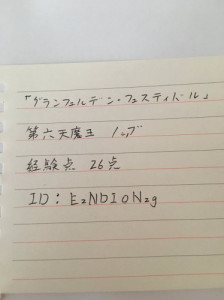 「グランフェルデン・フェスティバル」
第六天魔王 ノッブ
経験点 26点
ID：E2NDION2g